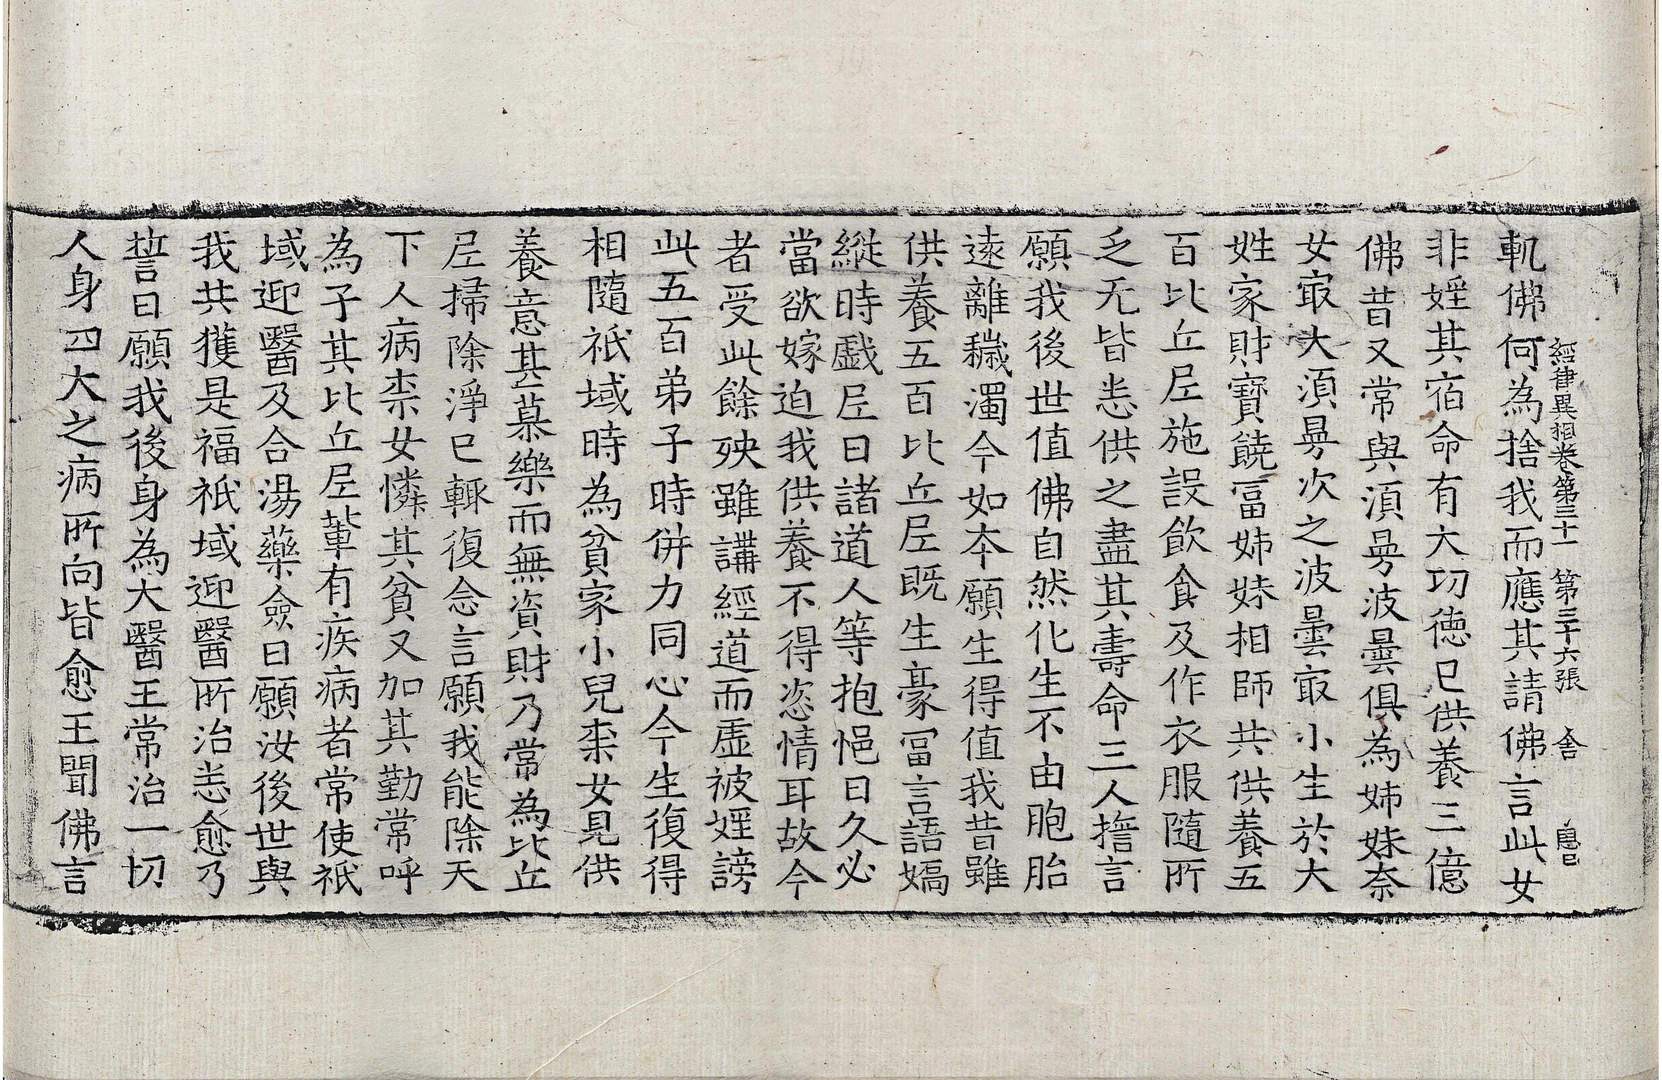 經律異相卷第三十一 第三十六張 舍
軌佛何為捨我而應其請佛言此女
非婬其宿命有大功德已供養三億
佛昔又常與湏曼波曇俱為姉妹柰
女㝡大湏曼次之波曇㝡小生於大
姓家財寶饒冨姉妹相師共供養五
百比丘𡰱施設飲食及作衣服隨所
乏无皆悉供之盡其壽命三人擔言
願我後世值佛自然化生不由胞胎
遠離穢濁今如夲願生得值我昔雖
供養五百比丘𡰱既生豪冨言語嬌
縱時戲𡰱曰諸道人等抱悒日久必
當欲嫁迫我供養不得恣情耳故今
者受此餘殃雖講經道而虛被婬謗
此五百弟子時併力同心今生復得
相隨祇域時為貧家小兒柰女見供
養意甚慕樂而無資財乃常為比丘
𡰱掃除淨已輒復念言願我能除天
下人病柰女憐其貧又加其勤常呼
為子其比丘𡰱輩有疾病者常使祇
域迎醫及合湯藥僉曰願汝後世與
我共獲是福祇域迎醫所治悉愈乃
誓曰願我後身為大醫王常治一切
人身四大之病所向皆愈王聞佛言